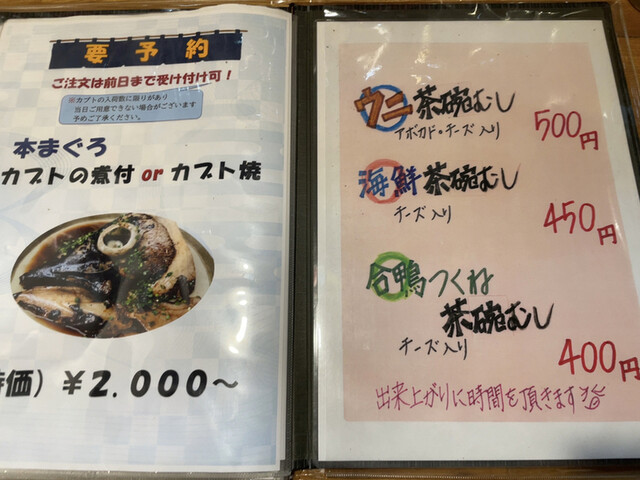 要予約
ご注文は前日まで受け付け可！
※カブトの入荷数に限りがあり
当日ご用意できない場合がございます
予めご了承ください。
本まぐろ
カブトの煮付 or カブト焼
価）￥2.000～
ウニ茶碗むし
アボカド・チーズ入り
500円
海鮮茶碗むし
チーズ入り
450円
合鴨つくね
茶碗むし
チーズ入り
400円
出来上がりに時間を頂きます